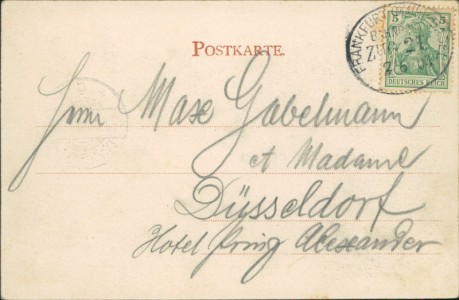 POSTKARTE.
FRANKFURT
5 5
DEUTSCHES REICH
Herrn Max Gabelmann
et Madame
Düsseldorf
Hotel Prinz Alexander